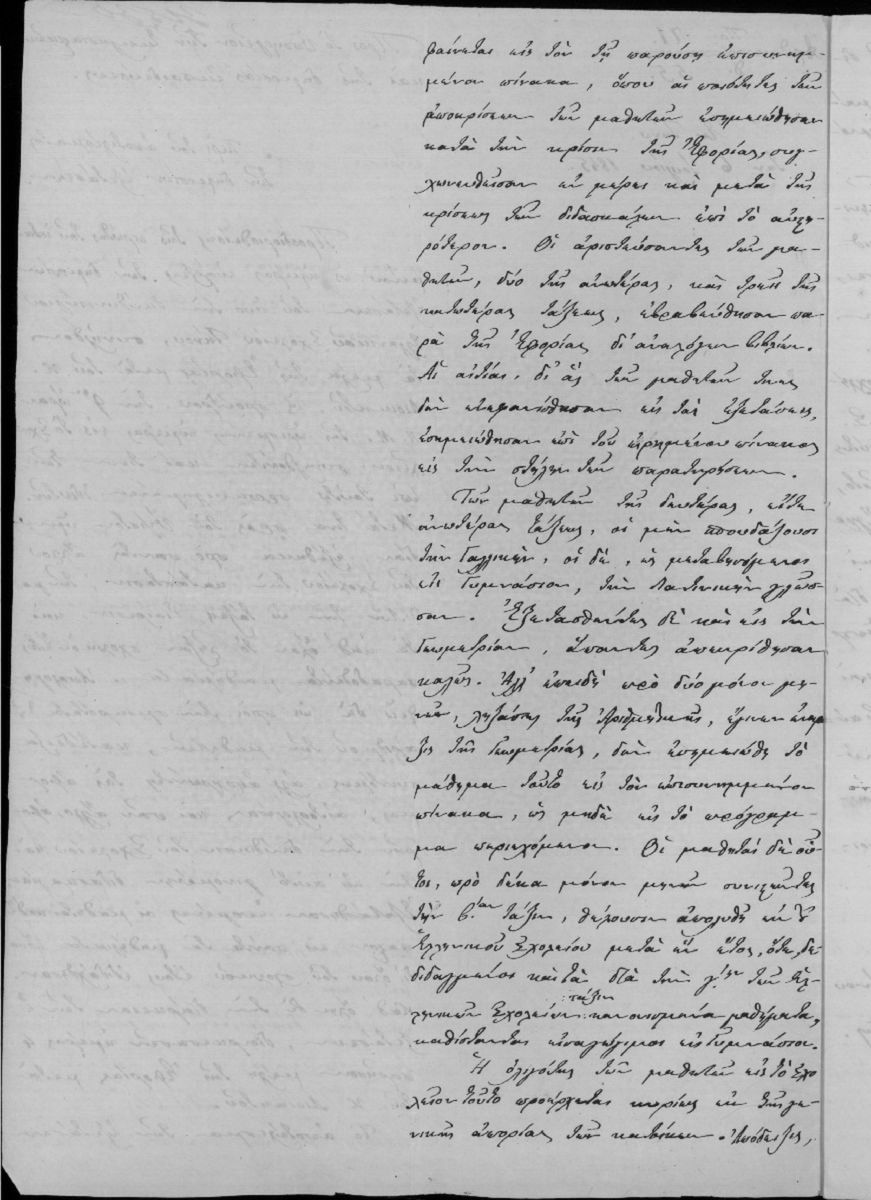 φαίνεται εἰς τὸν τῇ παρούσῃ ἐπισυνημ-
μένον πίνακα, ὅπου αἱ ποιότητες τῶν
ἀποκρίσεων τῶν μαθητῶν ἐσημειώθησαν
κατὰ τὴν κρίσιν τῆς Ἐφορίας, συγ-
χωνευθεῖσαν ἐν μέρει καὶ μετὰ τῆς
κρίσεως τῶν διδασκάλων ἐπὶ τὸ αὐστη-
ρότερον. Οἱ ἀριστεύσαντες τῶν μα-
θητῶν, δύο τῆς ἀνωτέρας, καὶ τρεῖς τῆς
κατωτέρας τάξεως, ἐβραβεύθησαν πα-
ρὰ τῆς Ἐφορίας δι' ἀναλόγων βιβλίων.
Αἱ αἰτίαι, δι' ἃς τῶν μαθητῶν τινες
δὲν ἐνεφανίσθησαν εἰς τὰς ἐξετάσεις,
ἐσημειώθησαν ἐπὶ τοῦ εἰρημένου πίνακος
εἰς τὴν στήλην τῶν παρατηρήσεων.
Τῶν μαθητῶν τῆς δευτέρας, εἴτε
ἀνωτέρας τάξεως, οἱ μὲν σπουδάζουσι
τὴν Γαλλικὴν, οἱ δὲ, ὡς μεταβησόμενοι
εἰς Γυμνάσιον, τὴν Λατινικὴν γλῶσ-
σαν. Ἐξετασθέντες δὲ καὶ εἰς τὴν
Γεωμετρίαν, ἅπαντες ἀπεκρίθησαν
καλῶς. Ἀλλ' ἐπειδὴ πρὸ δύο μόνον μη-
νῶν, ληξάσης τῆς Ἀριθμητικῆς, ἔγινεν ἔναρ
ξις τῆς Γεωμετρίας, δὲν ἐσημειώθη τὸ
μάθημα τοῦτο εἰς τὸν ἐπισυνημμένον
πίνακα, ὡς μηδὲ εἰς τὸ πρόγραμ-
μα περιεχόμενον. Οἱ μαθηταὶ δὲ οὗ-
τοι, πρὸ δέκα μόνον μηνῶν συνελθόντες
τὴν β.αν τάξιν, θέλουσιν ἀπολυθῆ ἐκ τοῦ
Ἑλληνικοῦ Σχολείου μετὰ ἓν ἔτος, ὅτε, δε-
διδαγμένοι καὶ τὰ διὰ τὴν γ.ην τῶν Ἑλ-
ληνικῶν Σχολείων :τάξιν: κανονισμένα μαθήματα,
καθίστανται εἰσαγώγιμοι εἰς Γυμνάσιον.
Ἡ ὀλιγότης τῶν μαθητῶν εἰς τὸ Σχο
λεῖον τοῦτο προέρχεται κυρίως ἐκ τῆς γε-
νικῆς ἀπορίας τῶν κατοίκων. Ἀπόδειξις,